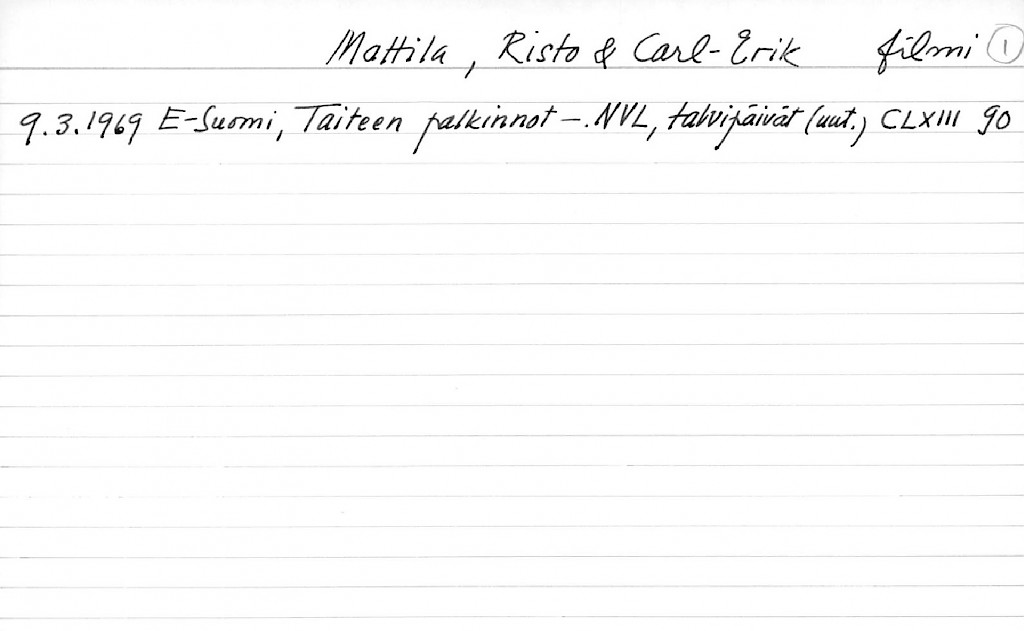 Mattila, Risto & Carl-Erik filmi 1
9.3.1969 E-Suomi, Taiteen palkinnot -. NVL, talvipäivät (uut.) CLXIII 90